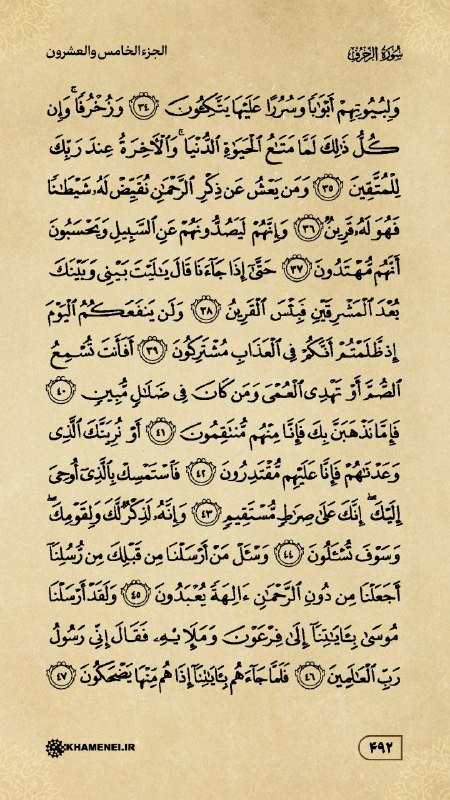 سُورَةُ الزُّخْرُفِ
الجزء الخامس والعشرون
وَلِبُيُوتِهِمْ أَبْوَٰبًا وَسُرُرًا عَلَيْهَا يَتَّكِـُٔونَ ٣٤ وَزُخْرُفًا ۚ وَإِن
كُلُّ ذَٰلِكَ لَمَّا مَتَٰعُ ٱلْحَيَوٰةِ ٱلدُّنْيَا ۚ وَٱلْـَٔاخِرَةُ عِندَ رَبِّكَ
لِلْمُتَّقِينَ ٣٥ وَمَن يَعْشُ عَن ذِكْرِ ٱلرَّحْمَٰنِ نُقَيِّضْ لَهُۥ شَيْطَٰنًا
فَهُوَ لَهُۥ قَرِينٌ ٣٦ وَإِنَّهُمْ لَيَصُدُّونَهُمْ عَنِ ٱلسَّبِيلِ وَيَحْسَبُونَ
أَنَّهُم مُّهْتَدُونَ ٣٧ حَتَّىٰٓ إِذَا جَآءَنَا قَالَ يَٰلَيْتَ بَيْنِى وَبَيْنَكَ
بُعْدَ ٱلْمَشْرِقَيْنِ فَبِئْسَ ٱلْقَرِينُ ٣٨ وَلَن يَنفَعَكُمُ ٱلْيَوْمَ
إِذ ظَّلَمْتُمْ أَنَّكُمْ فِى ٱلْعَذَابِ مُشْتَرِكُونَ ٣٩ أَفَأَنتَ تُسْمِعُ
ٱلصُّمَّ أَوْ تَهْدِى ٱلْعُمْىَ وَمَن كَانَ فِى ضَلَٰلٍ مُّبِينٍ ٤٠
فَإِمَّا نَذْهَبَنَّ بِكَ فَإِنَّا مِنْهُم مُّنتَقِمُونَ ٤١ أَوْ نُرِيَنَّكَ ٱلَّذِى
وَعَدْنَٰهُمْ فَإِنَّا عَلَيْهِم مُّقْتَدِرُونَ ٤٢ فَٱسْتَمْسِكْ بِٱلَّذِىٓ أُوحِىَ
إِلَيْكَ ۖ إِنَّكَ عَلَىٰ صِرَٰطٍ مُّسْتَقِيمٍ ٤٣ وَإِنَّهُۥ لَذِكْرٌ لَّكَ وَلِقَوْمِكَ ۖ
وَسَوْفَ تُسْـَٔلُونَ ٤٤ وَسْـَٔلْ مَنْ أَرْسَلْنَا مِن قَبْلِكَ مِن رُّسُلِنَآ
أَجَعَلْنَا مِن دُونِ ٱلرَّحْمَٰنِ ءَالِهَةً يُعْبَدُونَ ٤٥ وَلَقَدْ أَرْسَلْنَا
مُوسَىٰ بِـَٔايَٰتِنَآ إِلَىٰ فِرْعَوْنَ وَمَلَإِي۟هِۦ فَقَالَ إِنِّى رَسُولُ
رَبِّ ٱلْعَٰلَمِينَ ٤٦ فَلَمَّا جَآءَهُم بِـَٔايَٰتِنَآ إِذَا هُم مِّنْهَا يَضْحَكُونَ ٤٧
۴۹۲
KHAMENEI.IR